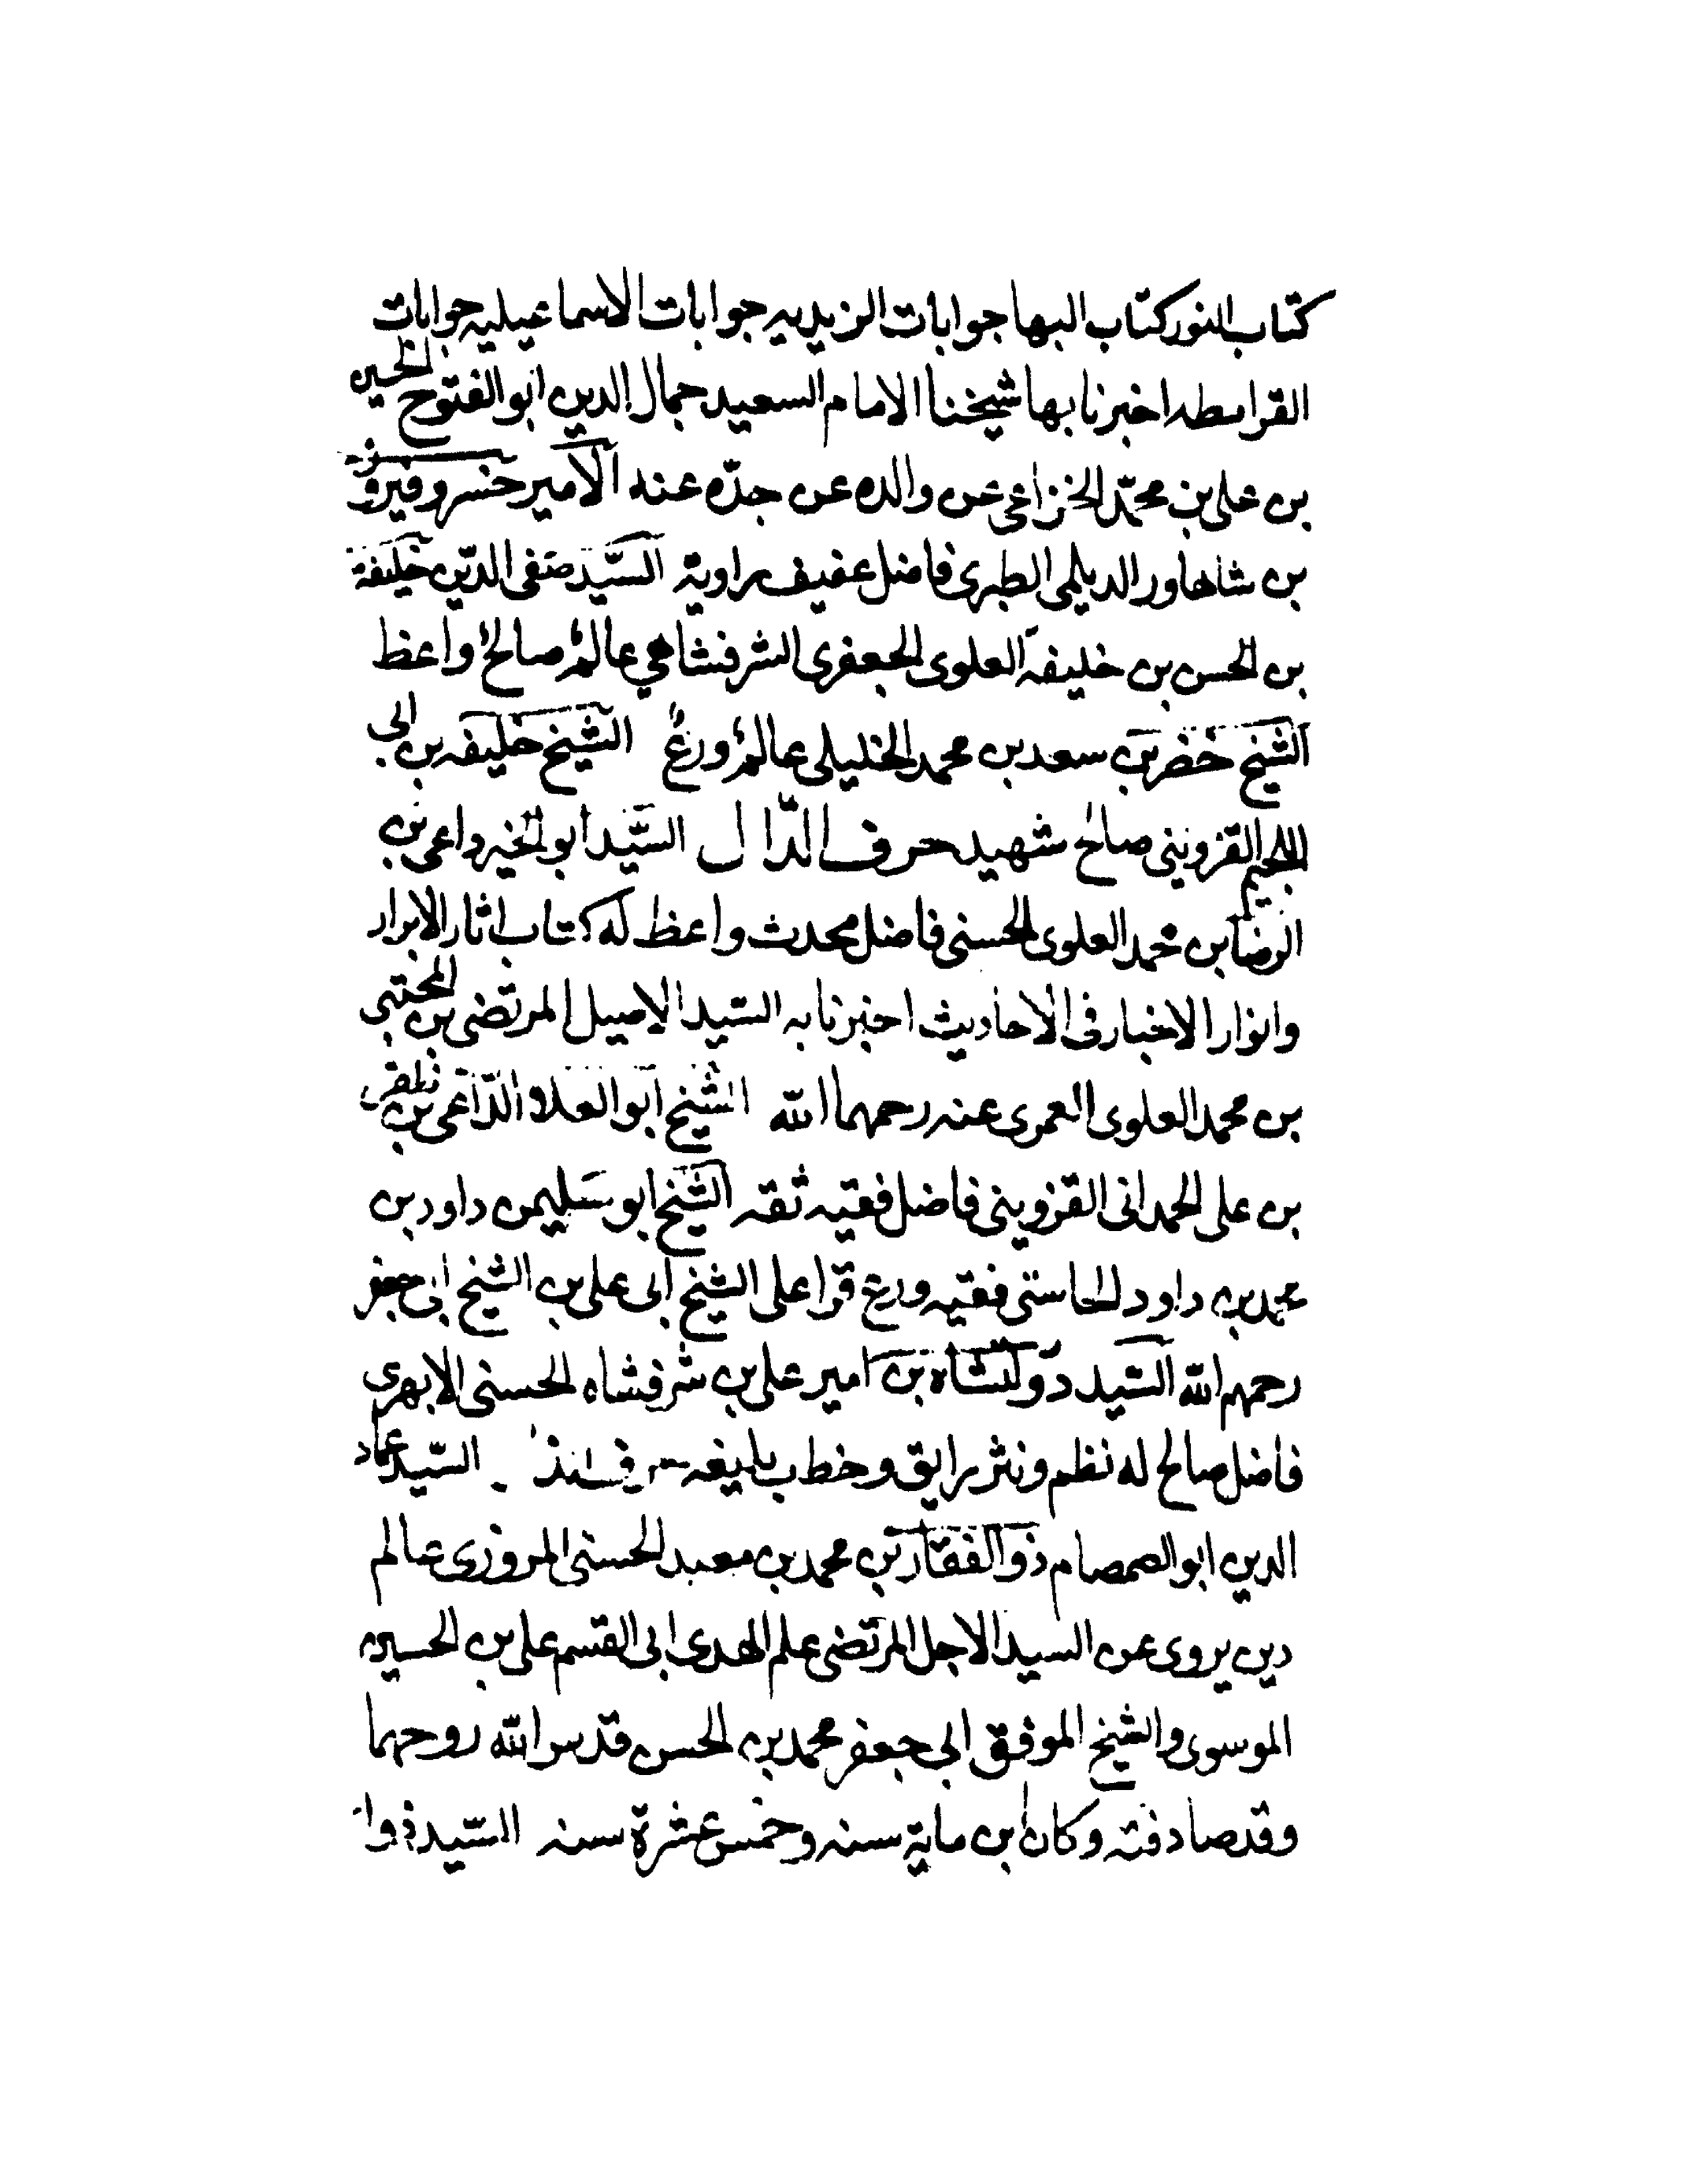 كتاب النور كتاب البها جوابات الزيديه جوابات الاسماعيليه جوابات
القرامطه اخبرنا بها شيخنا الامام السعيد جمال الدين ابو الفتوح الحسين
بن علی بن محمّد الخزاعی عن والده عن جدّه عنه الامير خسرو فيروز
بن شاهاور الديلمی الطبری فاضل عفيف راوية السيّد صفی الدّين خليفة
بن الحسن بن خليفه العلوی الجعفری الشرفشاهی عالمٌ صالحٌ واعظ
الشيخ خضر بن سعد بن محمد الخليلی عالمٌ ورعٌ الشيخ خليفه بن ابی
اللجيم القزوينی صالح شهيد حرف الدّال السيّد ابو الخير داعی بن
الرضا بن محمد العلوی الحسنی فاضل محدث واعظ له كتاب اثار الابرار
وانوار الاخبار فی الاحاديث اخبرنا به السيّد الاصيل المرتضی بن المجتبی
بن محمد العلوی العمری عنه رحمهما الله الشيخ ابو العلاء الدّاعی بن ظفر
بن علی الحمدانی القزوينی فاضل فقيه ثقه الشيخ ابو سليمن داود بن
محمد بن داود الحاستی فقيه ورع قرا علی الشيخ ابی علی بن الشيخ ابی جعفر
رحمهم الله السّيد دولتشاه بن امير علی بن شرفشاه الحسنی الابهری
فاضل صالح له نظم ونثر رايق وخطب بليغه السّيد عماد
الدين ابو الصمصام ذو الفقار بن محمد بن معبد الحسنی المروزی عالم
دين يروی عن السيد الاجل المرتضی علم الهدی ابی القسم علی بن الحسين
الموسوی والشيخ الموفق ابی جعفر محمد بن الحسن قدس الله روحهما
وقد صادفته وكان ابن ماية سنه وخمس عشرة سنه السّيد ذوا